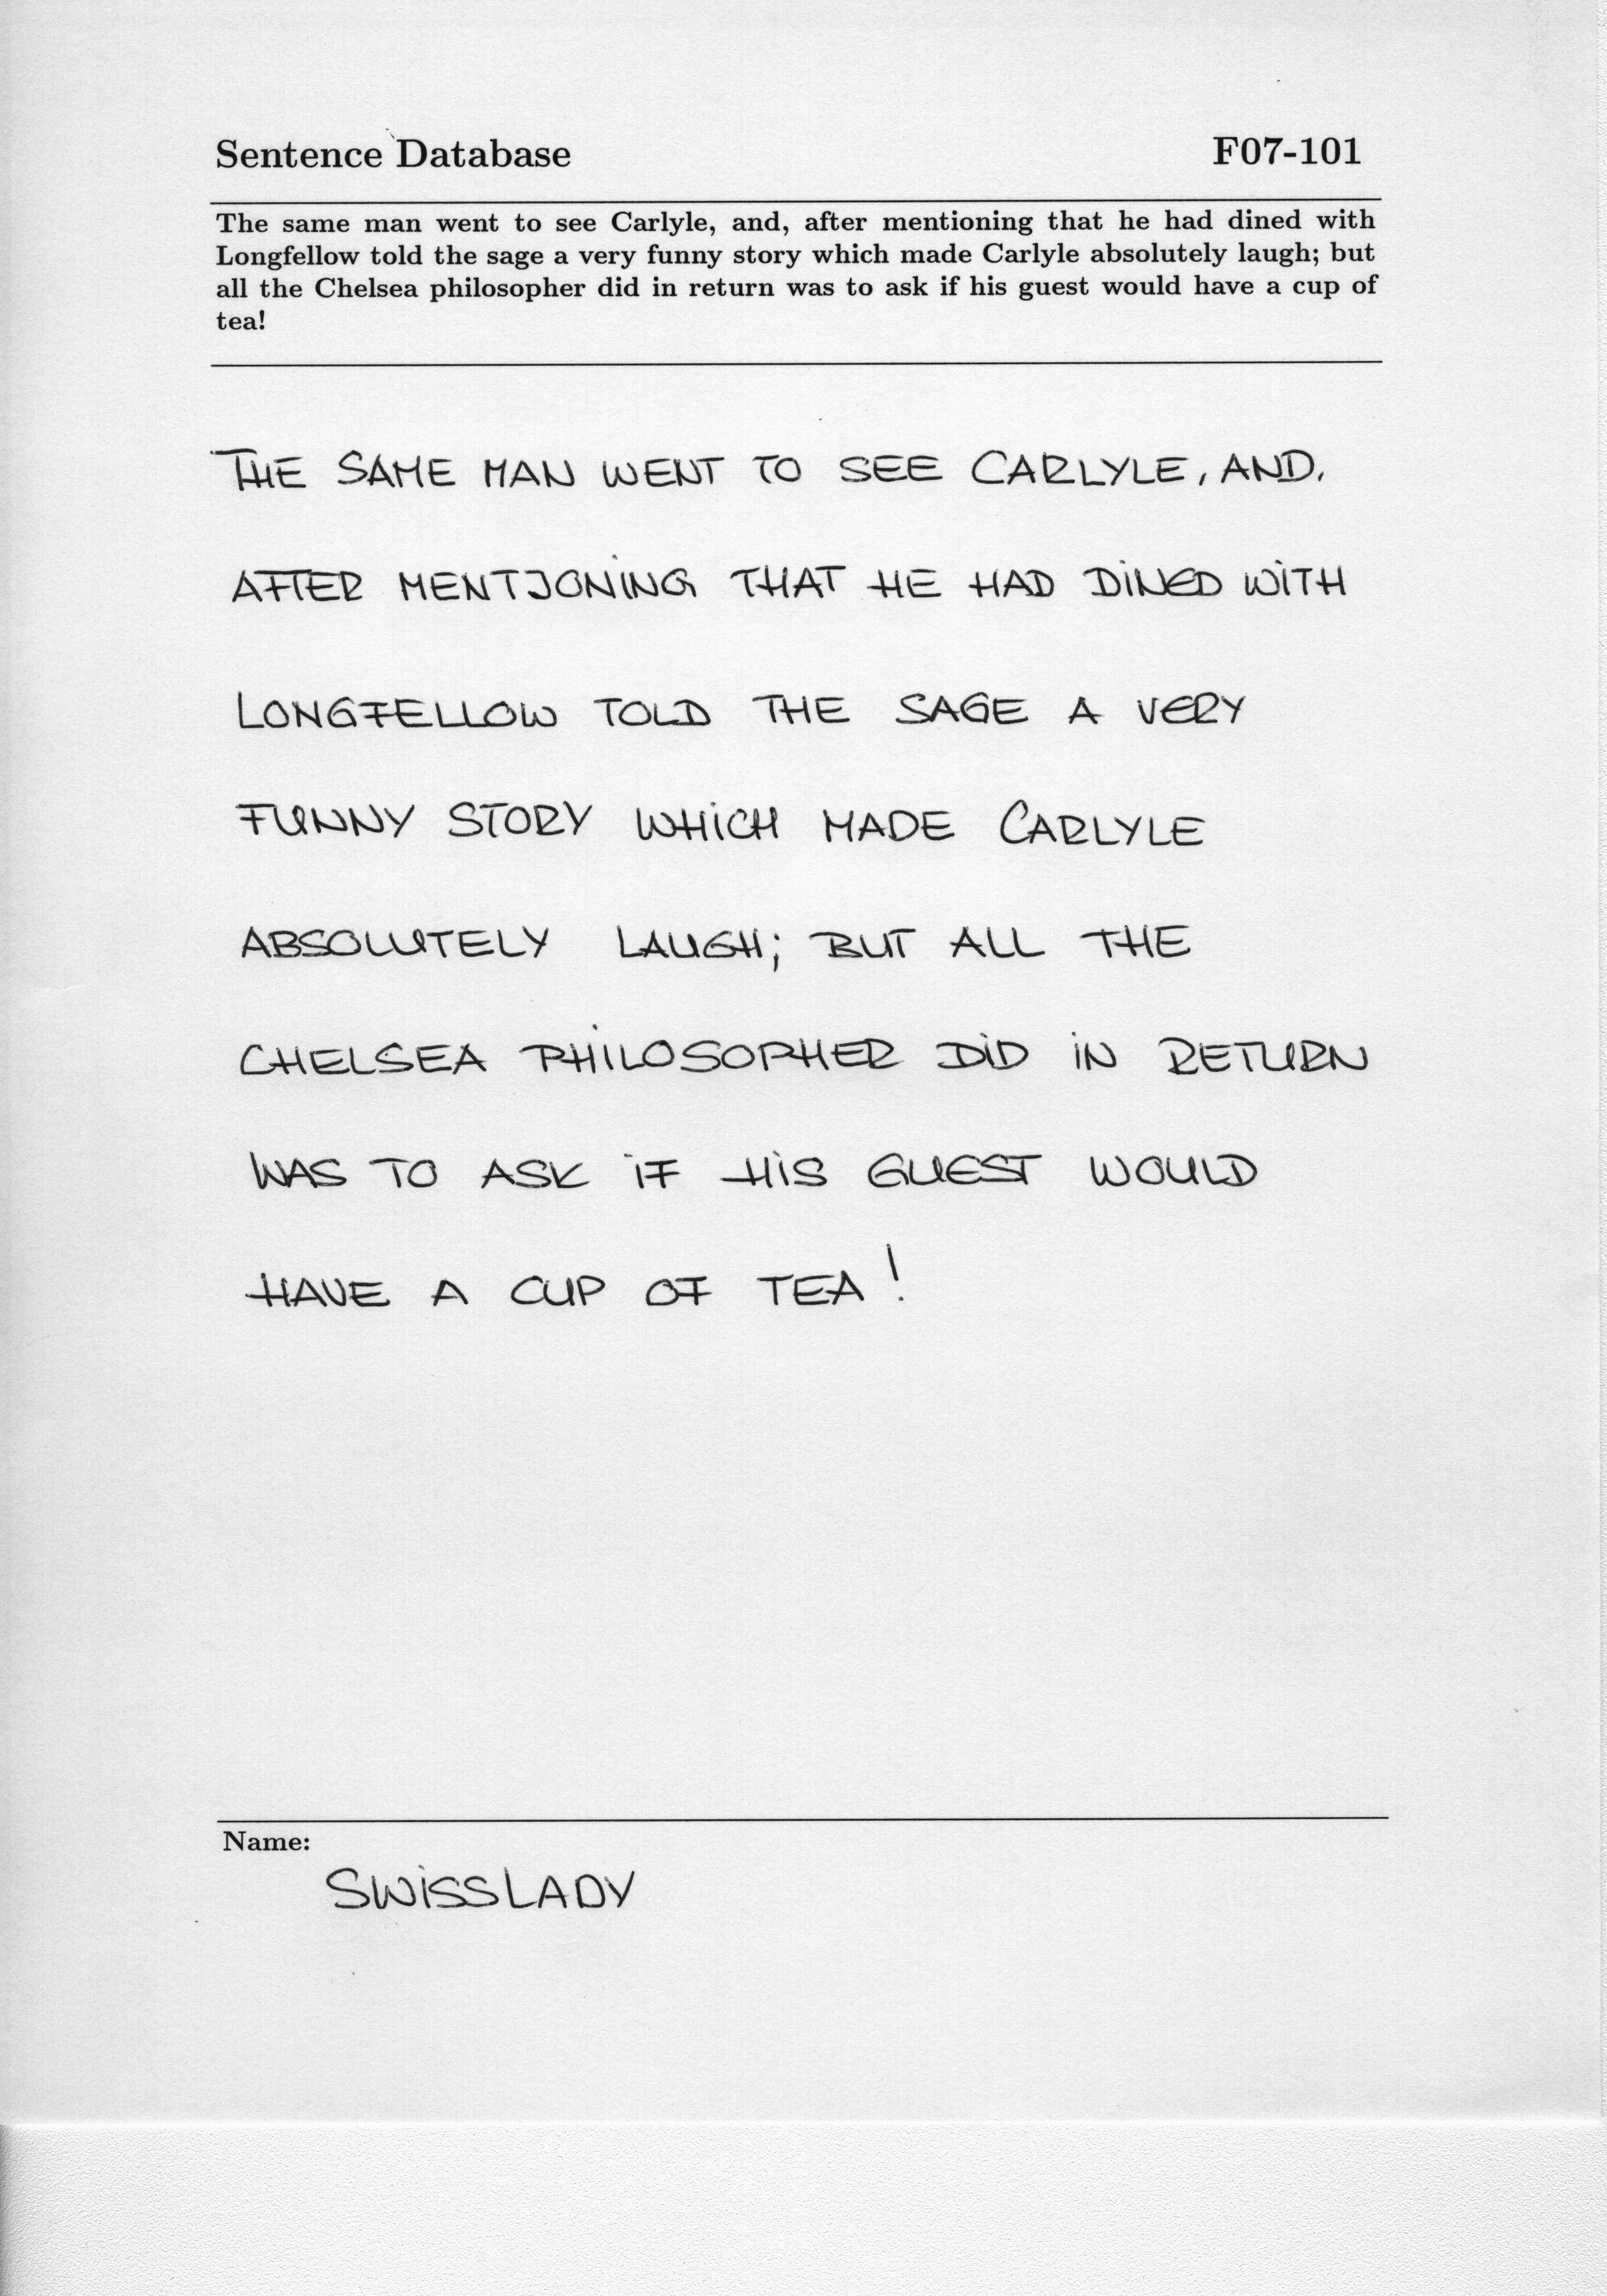 Sentence Database F07-101
The same man went to see Carlyle, and, after mentioning that he had dined with
Longfellow told the sage a very funny story which made Carlyle absolutely laugh; but
all the Chelsea philosopher did in return was to ask if his guest would have a cup of
tea!
THE SAME MAN WENT TO SEE CARLYLE, AND,
AFTER MENTIONING THAT HE HAD DiNED WiTH
LONGFELLOW TOLD THE SAGE A VERY
FUNNY STORY WHiCH MADE CARLYLE
ABSOLUTELY LAUGH; BUT ALL THE
CHELSEA PHiLOSOPHER DiD iN RETURN
WAS TO ASK iF HiS GUEST WOULD
HAVE A CUP OF TEA!
Name:
SWiSSLADY